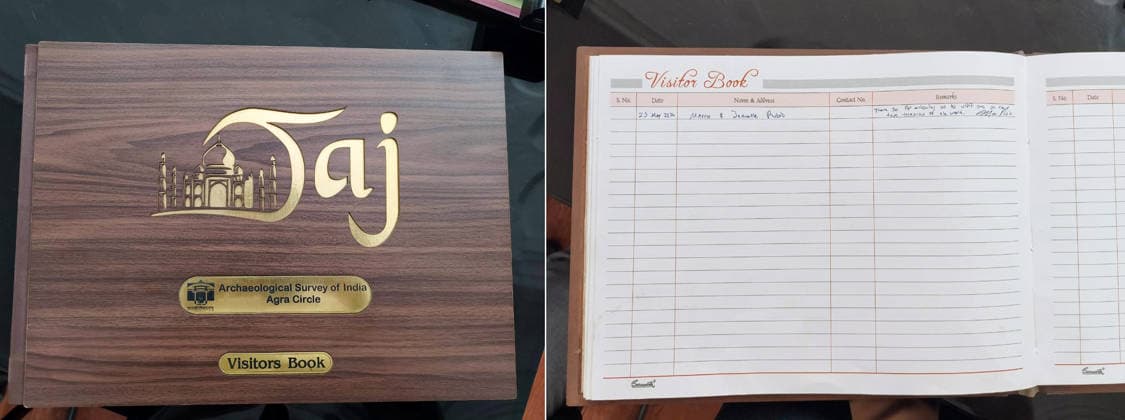 Taj
Archaeological Survey of India
Agra Circle
Visitors Book
Visitor Book
S. No.
Date
Name & Address
Contact No.
Remarks
S. No.
Date
23 May
Marco & Jeanette Rubio
Thank you for allowing us to visit one of the
of the world.